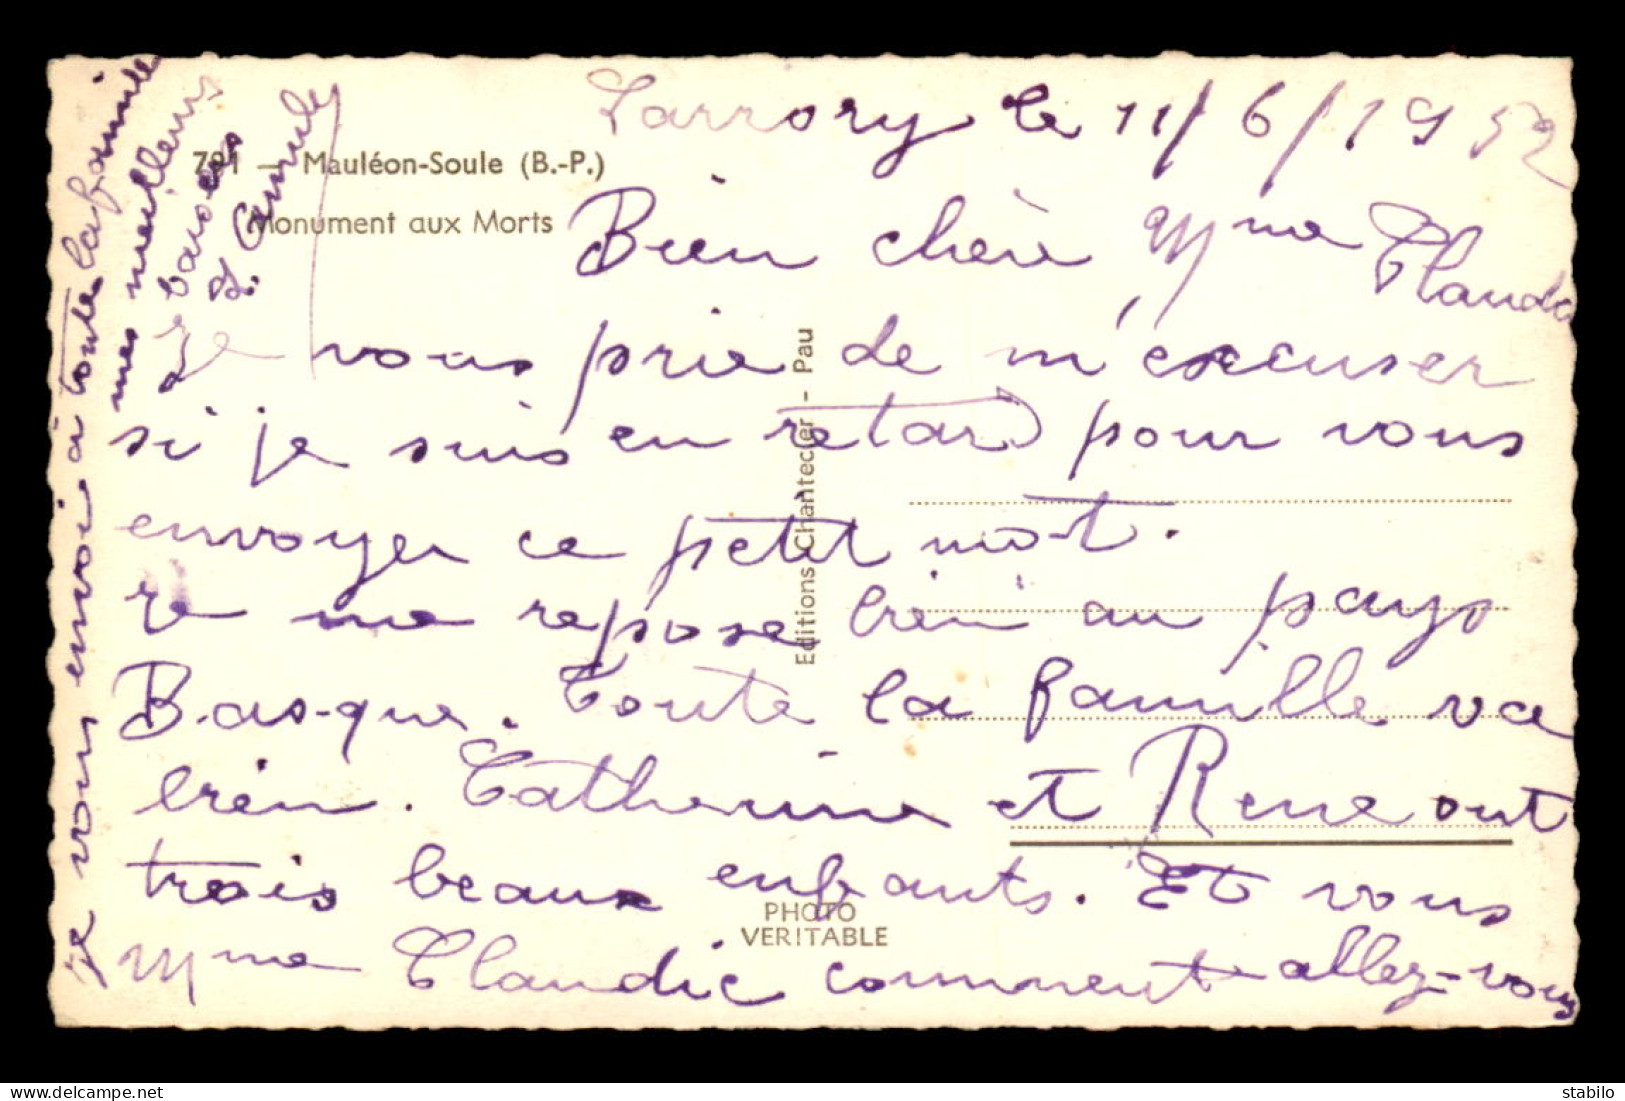 Larrory le 11/6/1952
791 — Mauléon-Soule (B.-P.)
Monument aux Morts
Bien chère Mme Claudi
Je vous prie de m'excuser
si je suis en retard pour vous
envoyer ce petit mot.
Je me repose bien au pays
Basque. Toute la famille va
bien. Catherine et Rene ont
trois beaux enfants. Et vous
Mme Claudie comment allez-vous
je vous envoi à toute la famille
mes meilleurs
baisers
Editions Chantecler - Pau
PHOTO
VERITABLE
stabilo
Delcampe.net